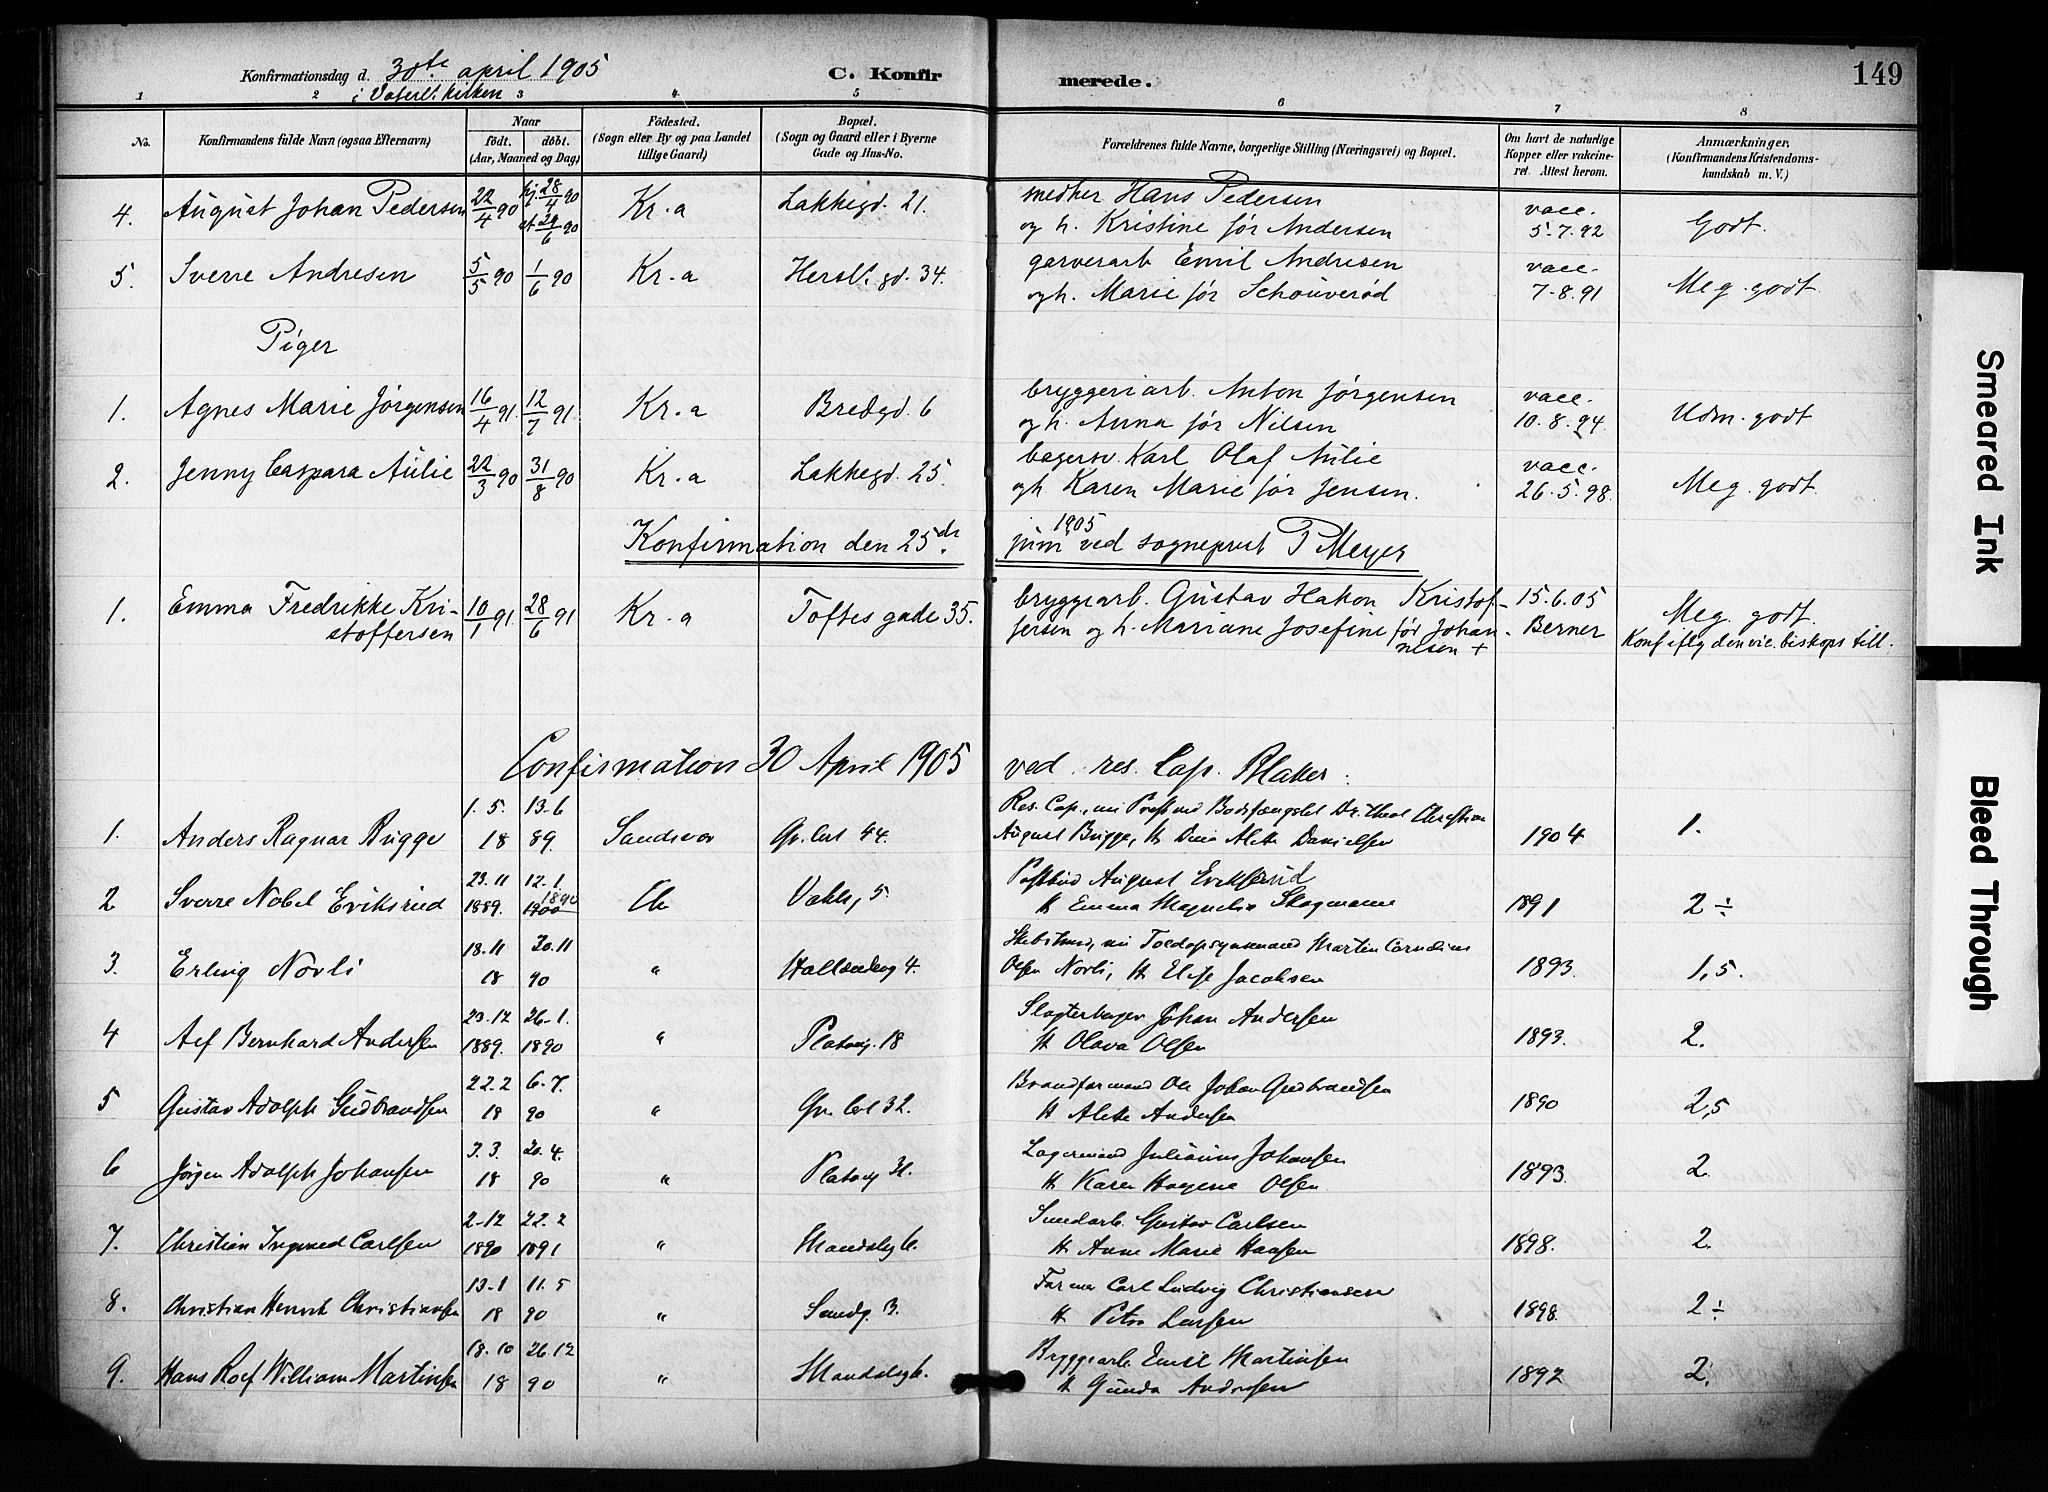 Konfirmationsdag d. 30te april 1905
i Vaterl. kirken
C. Konfirmerede.
149
1 2 3 4 5 6 7 8
No.
Konfirmandens fulde Navn (ogsaa Efternavn)
Naar
født. døbt.
(Aar, Maaned og Dag)
Fødested.
(Sogn eller By og paa Landet
tillige Gaard)
Bopæl.
(Sogn og Gaard eller i Byerne
Gade og Hus-No.
Forældrenes fulde Navne, borgerlige Stilling (Næringsvei) og Bopæl.
Om havt de naturlige
Kopper eller vakcine-
ret. Attest herom.
Anmærkninger.
(Konfirmandens Kristendoms-
kundskab m. V.)
4. August Johan Pedersen 22/4 90 hj. 28/4 90 Kr.a Lakkegd. 21. Hans Pedersen vacc. Godt.
29/6 90 og h. Kristine før Andersen 5-7.92
5. Sverre Andresen 5/5 90 1/6 90 Kr.a Hersl. gd. 34. garverarb Emil Andresen vacc. Meg. godt
og h. Marie før Schouverød 7-8.91
Piger
1. Agnes Marie Jørgensen 16/4 91. 12/7 91. Kr.a Bredgd. 6 bryggeriarb. Anton Jørgensen vacc. Udm. godt
og h. Anna før Nilsen 10.8.94.
2. Jenny Caspara Aulie 22/3 90 31/8 90 Kr.a Lakkegd. 25. bagersv. Karl Olaf Aulie vacc. Meg. godt.
og h Karen Marie før Jensen. 26.5.98.
Konfirmation den 25de juni 1905 ved sogneprest P Meyer
1. Emma Fredrikke Kri- 10/1 91 28/6 91 Kr.a Toftes gade 35. bryggearb. Gustav Hakon Kristof- 15.6.05 Meg. godt.
stoffersen fersen og h. Mariane Josefine før Johan- Berner
nesen + Konf iflg den vic. biskops till.
Confirmation 30 April 1905 ved res. Cap. Blaker:
1. Anders Ragnar Bugge 1.5. 13-6 Res. Cap., nu Præst ved Bodsfængslet Dr. theol Christian
18 89. Sandsvær Gr. 44. August Bugge, H Dina Alette Danielsen 1904 1.
2 Sverre Nobel Eriksrud 23.11 12-1. Vahls, 5. Postbud August Eriksrud
1889. 1900 1890 H Emma Magnelia Skogmann 1891 2÷
3. Erling Novli 18.11 30.11 " Hallendsg 4. nu Toldopsynsmand Martin Cornelius
18 90 Olsen Novli, H Elise Jacobsen 1893. 1,5.
4 Alf Bernhard Andersen 23-12 26-1. " Platoug. 18 Johan Andersen
1889. 1890 H Olava Olsen 1893. 2.
5 Gustav Adolph Gudbrandsen 22.2 6.7. " Gr. 32. Brandformand Ole Johan Gudbrandsen
18 90 H Alette Andersen 1890 2,5
6 Jørgen Adolph Johansen 3.3. 20.4. " Lagermand Julianus Johansen
18 90 H Karen Hagine Olsen 1893. 2.
7. Christian Ingvald Carlsen 2-12 22.2 " Mandalsg 6. Gustav Carlsen
1890 1891 H Anne Marie Hansen 1898. 2.
8. Christian Henrik Christiansen 13-1 11.5 " Sandg. 13. Carl Ludvig Christiansen
18 90 H Petra Larsen 1898. 2÷
9. Hans Rolf William Martinsen 18.10 26.12 " Mandalsg 6. Bryggearb. Emil Martinsen
18 90 H Gunda Andresen 1892 2.
Smeared Ink
Bleed Through